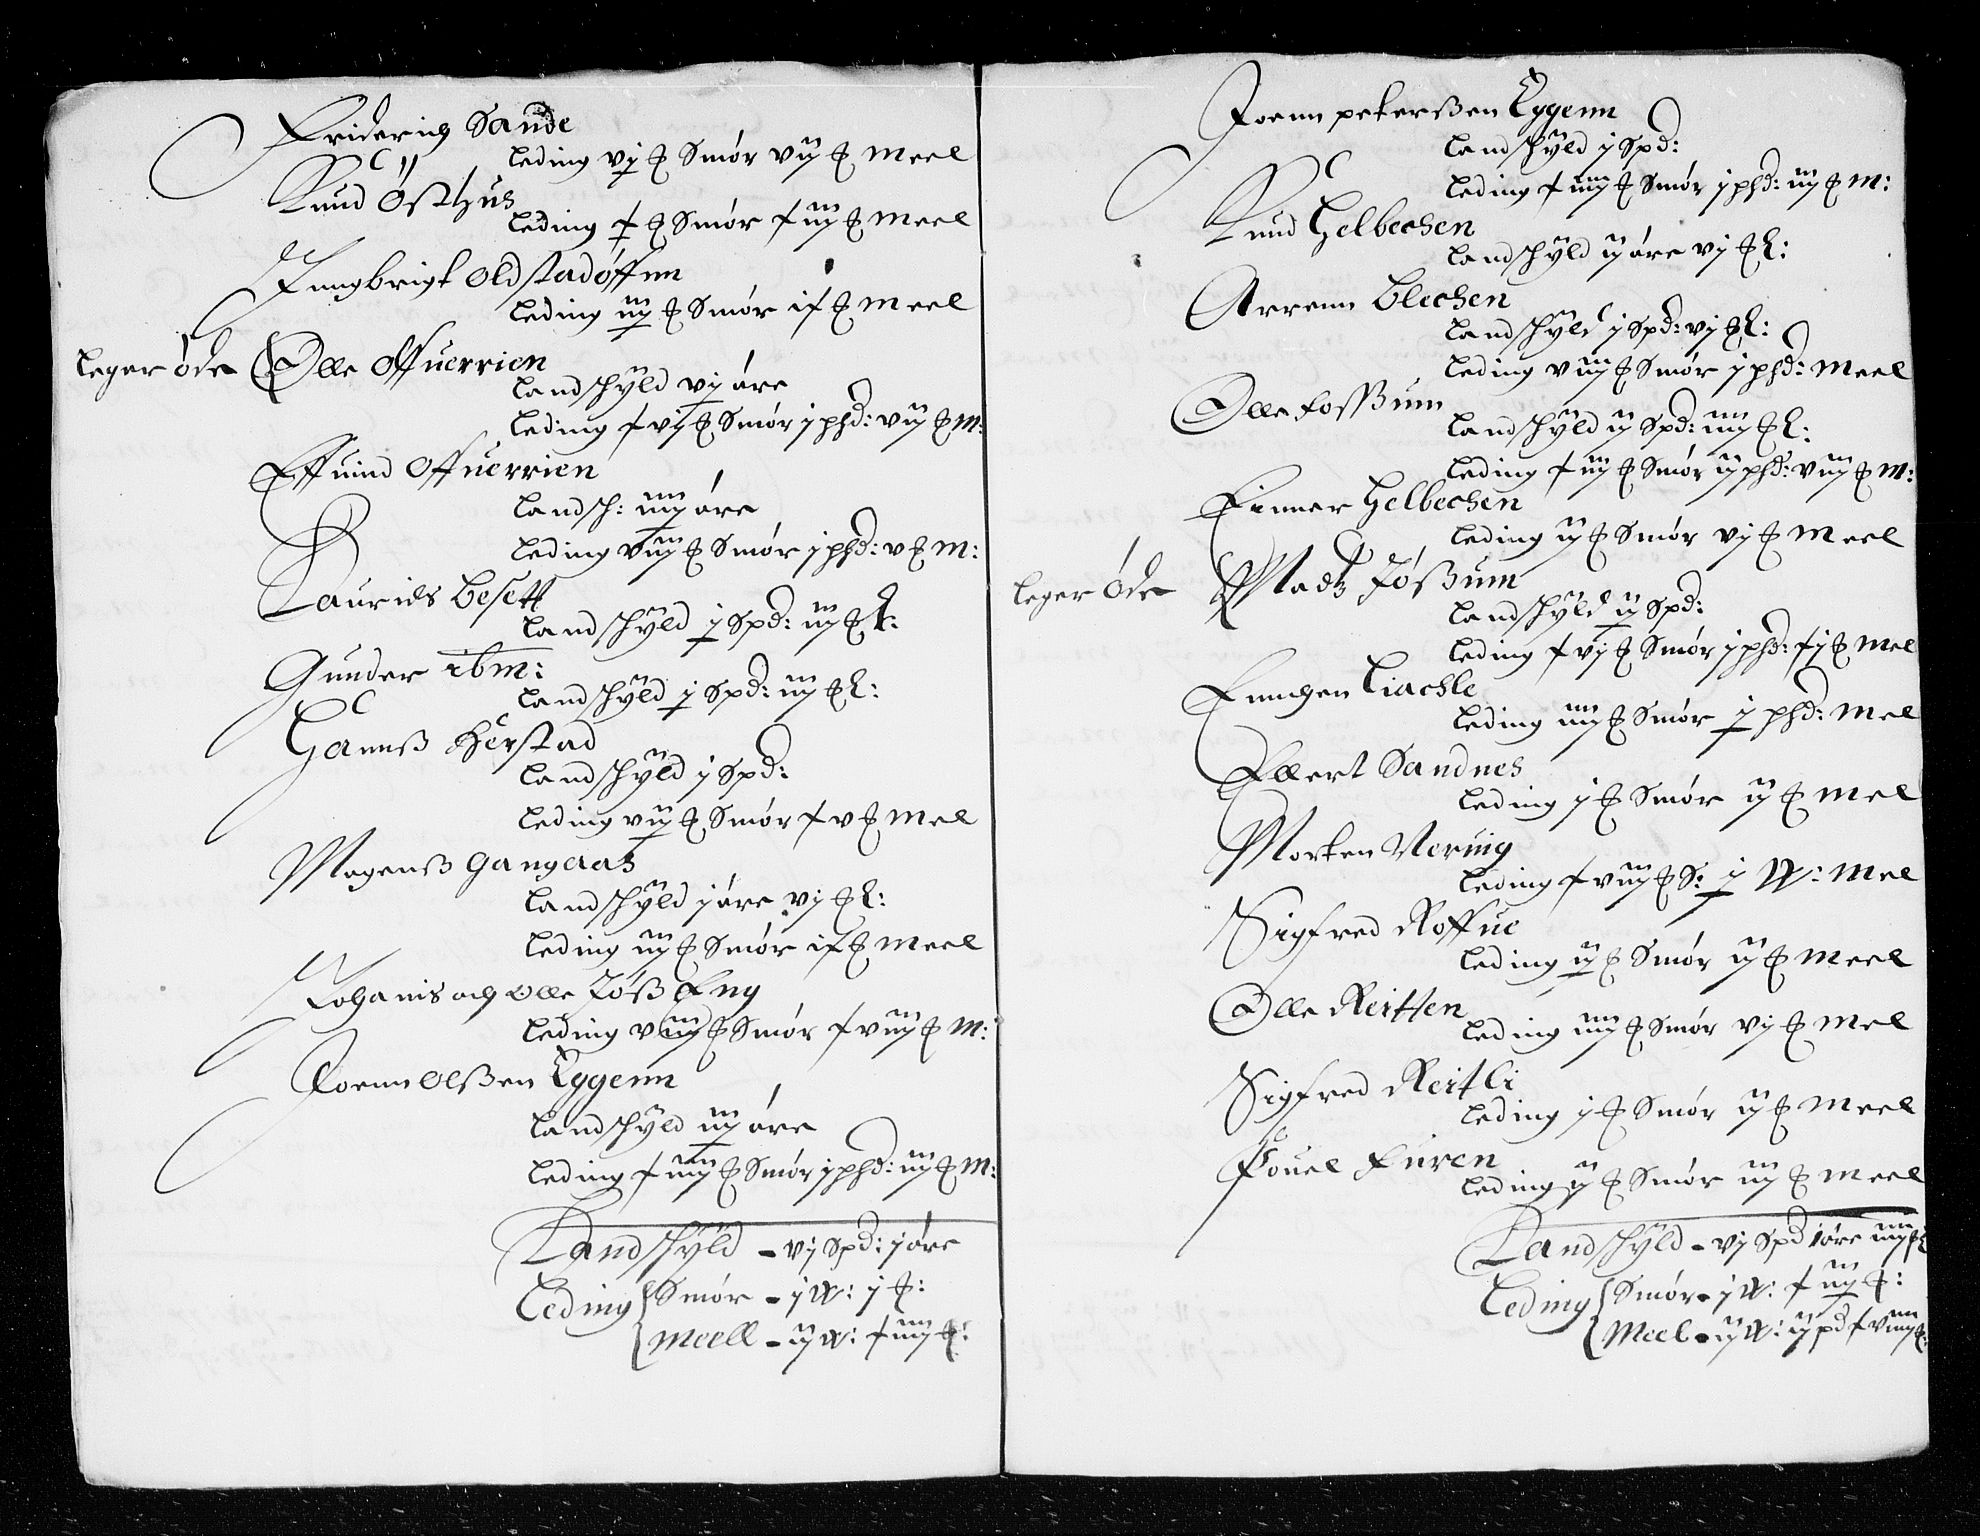 Friderich Sande
Leding vj ℔ Smør vij ℔ Meel
Knud Østhus
Leding x ℔ Smør x iij ℔ Meel
Jungbrigt Oldstadøffnn
Leding iij ℔ Smør ix ℔ Meel
leger øde Olle Offuerrien
Landschyld vj øre
Leding xvj ℔ Smør j phd: vij ℔ M:
Effuind Offuerrien
Landsch: iiij øre
Leding viij ℔ Smør j phd: v ℔ M:
Laurids Besett
Landschyld j Spd: iij ℔ L:
Gunder ibm:
Landschyld j Spd: iij ℔ L:
Hanns Herstad
Landschyld j Spd:
Leding vij ℔ Smør xv ℔ Mel
Mogenß Gangeraas
Landschyld j øre vj ℔ L:
Leding iij ℔ Smør ix ℔ Meel
Johanis och Olle Jøß Eng
Leding viij ℔ Smør xviij ℔ M:
Joenn Olßen Eggenn
Landschyld iij øre
Leding x iiij ℔ Smør j phd: iiij ℔ M:
Landschyld - vj Spd: j øre
Leding Smør - j W: j ℔:
Meell - ij W: x iiij ℔:
Joenn peterßen Eggenn
Landschyld j Spd:
Leding x iiij ℔ Smør j phd: iij ℔ M:
Knud Helbechen
Landschyld ij øre vj ℔ L:
Arrenn Blechen
Landschyld j Spd: vj ℔ L:
Leding viij ℔ Smør j phd: Meel
Olle Fosßum
Landschyld ij Spd: iiij ℔ L:
Leding x iij ℔ Smør ij phd: viij ℔ M:
Einner Helbechen
Leding ij ℔ Smør vj ℔ Meel
leger øde Madtz Jøßum
Landschyld ij Spd:
Leding xvj ℔ Smør j phd: xj ℔ Mel
Enngen Liachle
Leding iiij ℔ Smør j phd: Mel
Ellert Sandnes
Leding j ℔ Smør ij ℔ Mel
Morten Neruig
Leding xviij ℔ S: j W: Mel
Sigfred Roffue
Leding ij ℔ Smør ij ℔ Meel
Olle Reitten
Leding iiij ℔ Smør vj ℔ Mel
Sigfred Reitli
Leding j ℔ Smør ij ℔ Meel
Pouel Furen
Leding ij ℔ Smør iij ℔ Meel
Landschyld - vj Spd j øre iiij ℔ L
Leding Smør - j W: x iij ℔:
Meel - ij W: ij pd xviiij ℔: